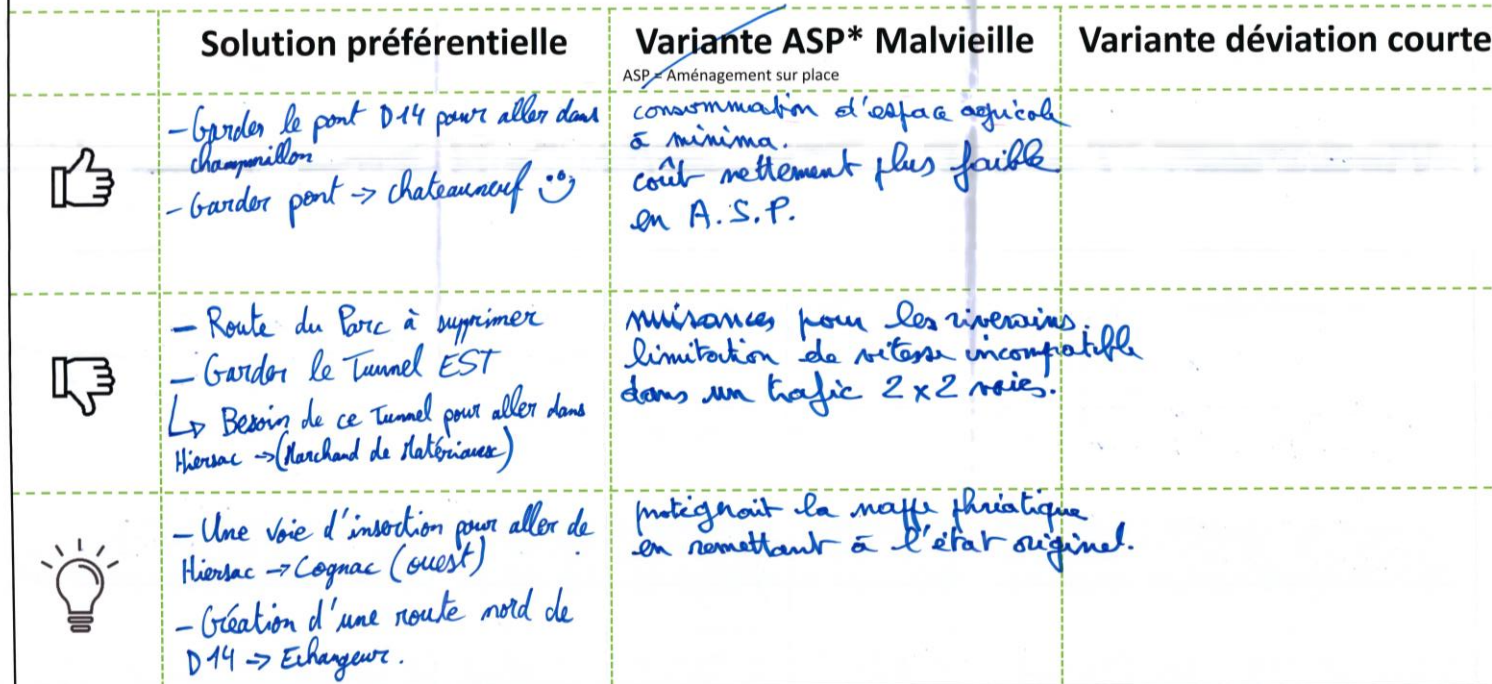 Solution préférentielle
Variante ASP* Malvieille
ASP = Aménagement sur place
Variante déviation courte
- Garder le pont D14 pour aller dans
champmillon
- Garder pont -> chateauneuf
consommation d'espace agricole
à minima.
coût nettement plus faible
en A.S.P.
- Route du Parc à supprimer
- Garder le Tunnel EST
↳ Besoin de ce Tunnel pour aller dans
Hiersac -> (Marchand de Matériaux)
nuisances pour les riverains.
limitation de vitesse incompatible
dans un trafic 2 x 2 voies.
- Une voie d'insertion pour aller de
Hiersac -> Cognac (ouest)
- Création d'une route nord de
D14 -> Echangeur.
protégerait la nappe phréatique
en remettant à l'état originel.